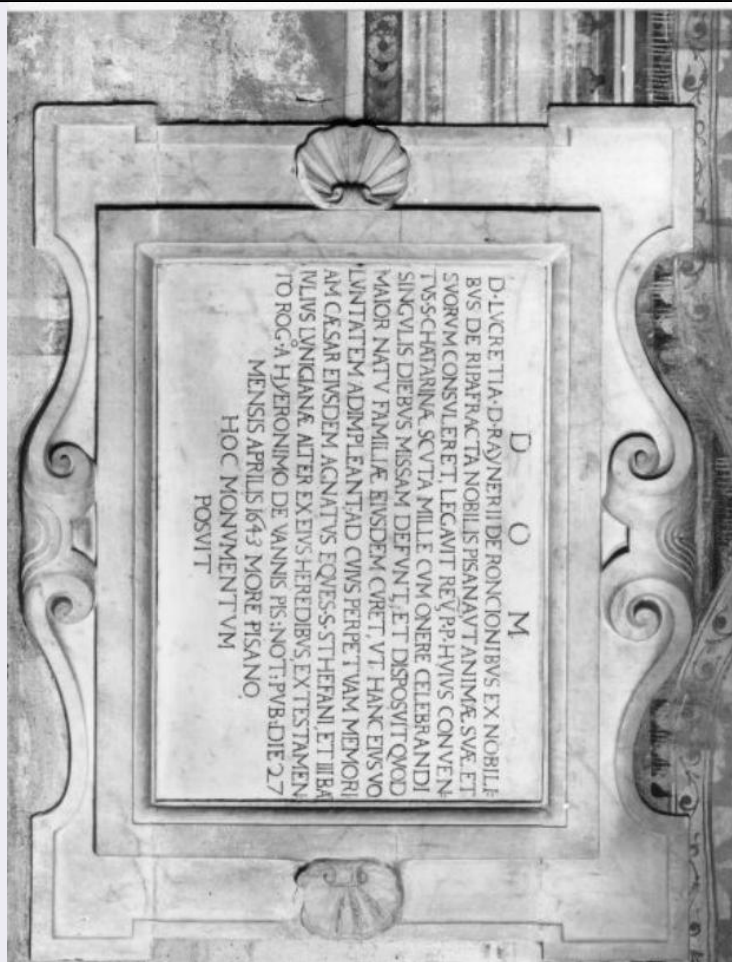 D O M
D·LVCRETIA·D·RAYNERII DE RONCIONIBVS EX NOBILI=
BVS DE RIPAFRACTA NOBILIS PISANA VT ANIMÆ SVÆ, ET
SVORVM CONSVLERET, LEGAVIT REV̄·P·P·HVIVS CONVEN=
TVS·S·CHATARINÆ SCVTA MILLE CVM ONERE CELEBRANDI
SINGVLIS DIEBVS MISSAM DEFVNT; ET DISPOSVIT QVOD
MAIOR NATV FAMILIÆ EIVSDEM CVRET, VT HANC EIVS VO
LVNTATEM ADIMPLEANT, AD CVIVS PERPETVAM MEMORI
AM CÆSAR EIVSDEM AGNATVS EQVES·S·STHEFANI, ET
IVLIVS LVNIGIANÆ ALTER EX EIVS HEREDIBVS, EX TESTAMEN
TO ROG·A HYERONIMO DE VANNIS PIS: NOT: PVB: DIE 27
MENSIS APRILIS 1643 MORE PISANO,
HOC MONVMENTVM
POSVIT